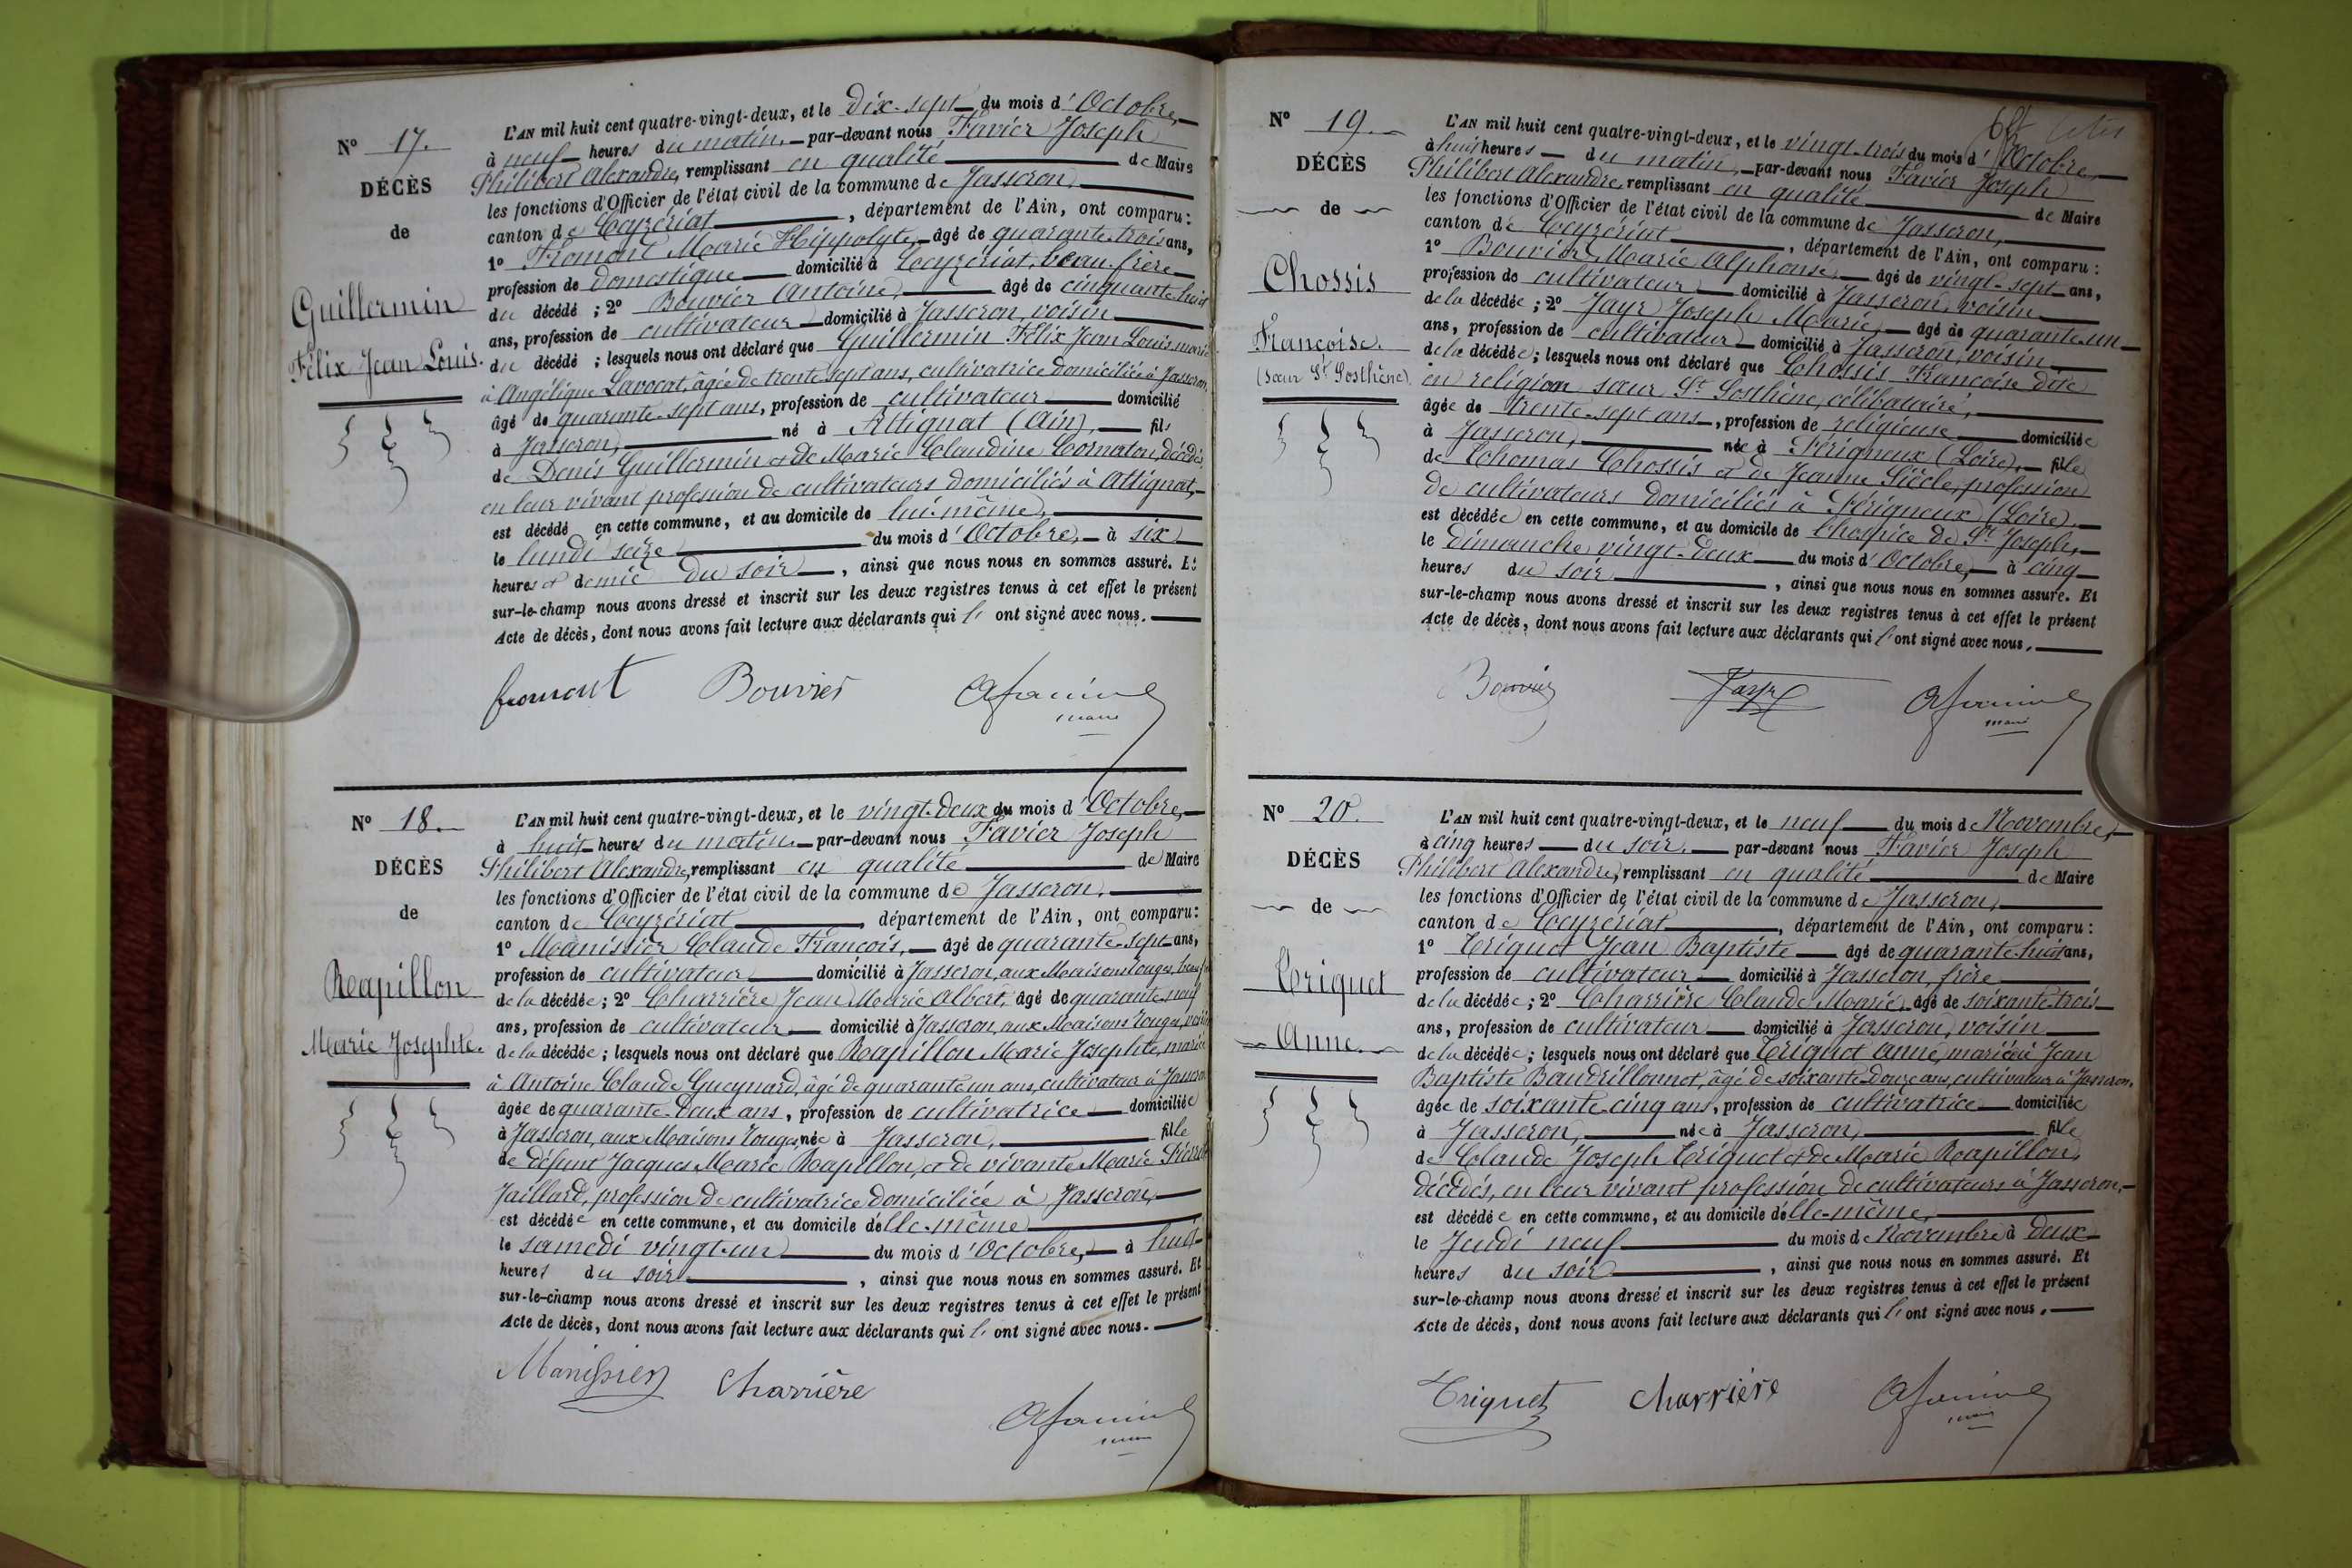 N° 17.
DÉCÈS
de
Guillermin
Félix Jean Louis.
L'AN mil huit cent quatre-vingt-deux, et le dix-sept du mois d'Octobre,
à neuf heures du matin, par-devant nous Favier Joseph
Philibert Alexandre, remplissant en qualité de Maire
les fonctions d'Officier de l'état civil de la commune de Jasseron,
canton de Ceyzériat, département de l'Ain, ont comparu:
1° Fromont Marie Hippolyte, âgé de quarante-trois ans,
profession de domestique domicilié à Ceyzériat, beau-frère
du décédé; 2° Bouvier Antoine, âgé de cinquante-huit
ans, profession de cultivateur domicilié à Jasseron, voisin
du décédé; lesquels nous ont déclaré que Guillermin Félix Jean Louis marié
à Angélique Lavocat, âgée de trente-sept ans, cultivatrice domiciliée à Jasseron,
âgé de quarante-sept ans, profession de cultivateur domicilié
à Jasseron, né à Attignat (Ain), fils
de Denis Guillermin et de Marie Claudine Cornaton, décédés,
en leur vivant profession de cultivateurs domiciliés à Attignat,
est décédé en cette commune, et au domicile de lui-même,
le lundi seize du mois d'Octobre, à six
heures et demie du soir, ainsi que nous nous en sommes assuré. Et
sur-le-champ nous avons dressé et inscrit sur les deux registres tenus à cet effet le présent
Acte de décès, dont nous avons fait lecture aux déclarants qui l'ont signé avec nous.
fromont Bouvier A favier
maire
N° 18.
DÉCÈS
de
Rapillon
Marie Josephte.
L'AN mil huit cent quatre-vingt-deux, et le vingt-deux du mois d'Octobre,
à huit heures du matin, par-devant nous Favier Joseph
Philibert Alexandre, remplissant en qualité de Maire
les fonctions d'Officier de l'état civil de la commune de Jasseron,
canton de Ceyzériat, département de l'Ain, ont comparu:
1° Manissier Claude François, âgé de quarante-sept ans,
profession de cultivateur domicilié à Jasseron, aux Maisons rouges,
de la décédée; 2° Charrière Jean Marie Albert, âgé de quarante-neuf
ans, profession de cultivateur domicilié à Jasseron, aux Maisons rouges, voisin
de la décédée; lesquels nous ont déclaré que Rapillon Marie Josephte, mariée
à Antoine Claude Gueynard, âgé de quarante un ans, cultivateur à Jasseron
âgée de quarante-deux ans, profession de cultivatrice domiciliée
à Jasseron, aux Maisons rouges, née à Jasseron, fille
de défunt Jacques Marie Rapillon, et de vivante Marie Pierrette
Jaillard, profession de cultivatrice domiciliée à Jasseron,
est décédée en cette commune, et au domicile d'elle-même
le samedi vingt-un du mois d'Octobre, à huit
heures du soir, ainsi que nous nous en sommes assuré. Et
sur-le-champ nous avons dressé et inscrit sur les deux registres tenus à cet effet le présent
Acte de décès, dont nous avons fait lecture aux déclarants qui l'ont signé avec nous.
Manissier Charrière
A favier
maire
N° 19.
DÉCÈS
de
Chossis
Françoise.
(sœur St Sosthène)
L'AN mil huit cent quatre-vingt-deux, et le vingt-trois du mois d'Octobre,
à huit heures du matin, par-devant nous Favier Joseph
Philibert Alexandre, remplissant en qualité de Maire
les fonctions d'Officier de l'état civil de la commune de Jasseron,
canton de Ceyzériat, département de l'Ain, ont comparu:
1° Bouvier Marie Alphonse, âgé de vingt-sept ans,
profession de cultivateur domicilié à Jasseron, voisin
de la décédée; 2° Jayr Joseph Marie, âgé de quarante-un
ans, profession de cultivateur domicilié à Jasseron, voisin
de la décédée; lesquels nous ont déclaré que Chossis Françoise dite
en religion sœur St Sosthène, célibataire,
âgée de trente-sept ans, profession de religieuse domiciliée
à Jasseron, née à Périgneux (Loire), fille
de Thomas Chossis et de Jeanne Siècle, profession
de cultivateurs domiciliés à Périgneux (Loire),
est décédée en cette commune, et au domicile de l'hospice de St Joseph,
le Dimanche vingt-deux du mois d'Octobre, à cinq
heures du soir, ainsi que nous nous en sommes assuré. Et
sur-le-champ nous avons dressé et inscrit sur les deux registres tenus à cet effet le présent
Acte de décès, dont nous avons fait lecture aux déclarants qui l'ont signé avec nous.
Bouvier Jayr A favier
maire
N° 20.
DÉCÈS
de
Triquet
Anne.
L'AN mil huit cent quatre-vingt-deux, et le neuf du mois de Novembre,
à cinq heures du soir, par-devant nous Favier Joseph
Philibert Alexandre, remplissant en qualité de Maire
les fonctions d'Officier de l'état civil de la commune de Jasseron,
canton de Ceyzériat, département de l'Ain, ont comparu:
1° Triquet Jean Baptiste âgé de quarante-huit ans,
profession de cultivateur domicilié à Jasseron, frère
de la décédée; 2° Charrière Claude Marie, âgé de soixante-trois
ans, profession de cultivateur domicilié à Jasseron, voisin
de la décédée; lesquels nous ont déclaré que Triquet Anne, mariée à Jean
Baptiste Baudrillonnet, âgé de soixante-douze ans, cultivateur à Jasseron,
âgée de soixante-cinq ans, profession de cultivatrice domiciliée
à Jasseron, née à Jasseron, fille
de Claude Joseph Triquet et de Marie Rapillon,
décédés, en leur vivant profession de cultivateurs à Jasseron,
est décédée en cette commune, et au domicile d'elle-même,
le Jeudi neuf du mois de Novembre à deux
heures du soir, ainsi que nous nous en sommes assuré. Et
sur-le-champ nous avons dressé et inscrit sur les deux registres tenus à cet effet le présent
Acte de décès, dont nous avons fait lecture aux déclarants qui l'ont signé avec nous.
Triquet Charrière A favier
maire